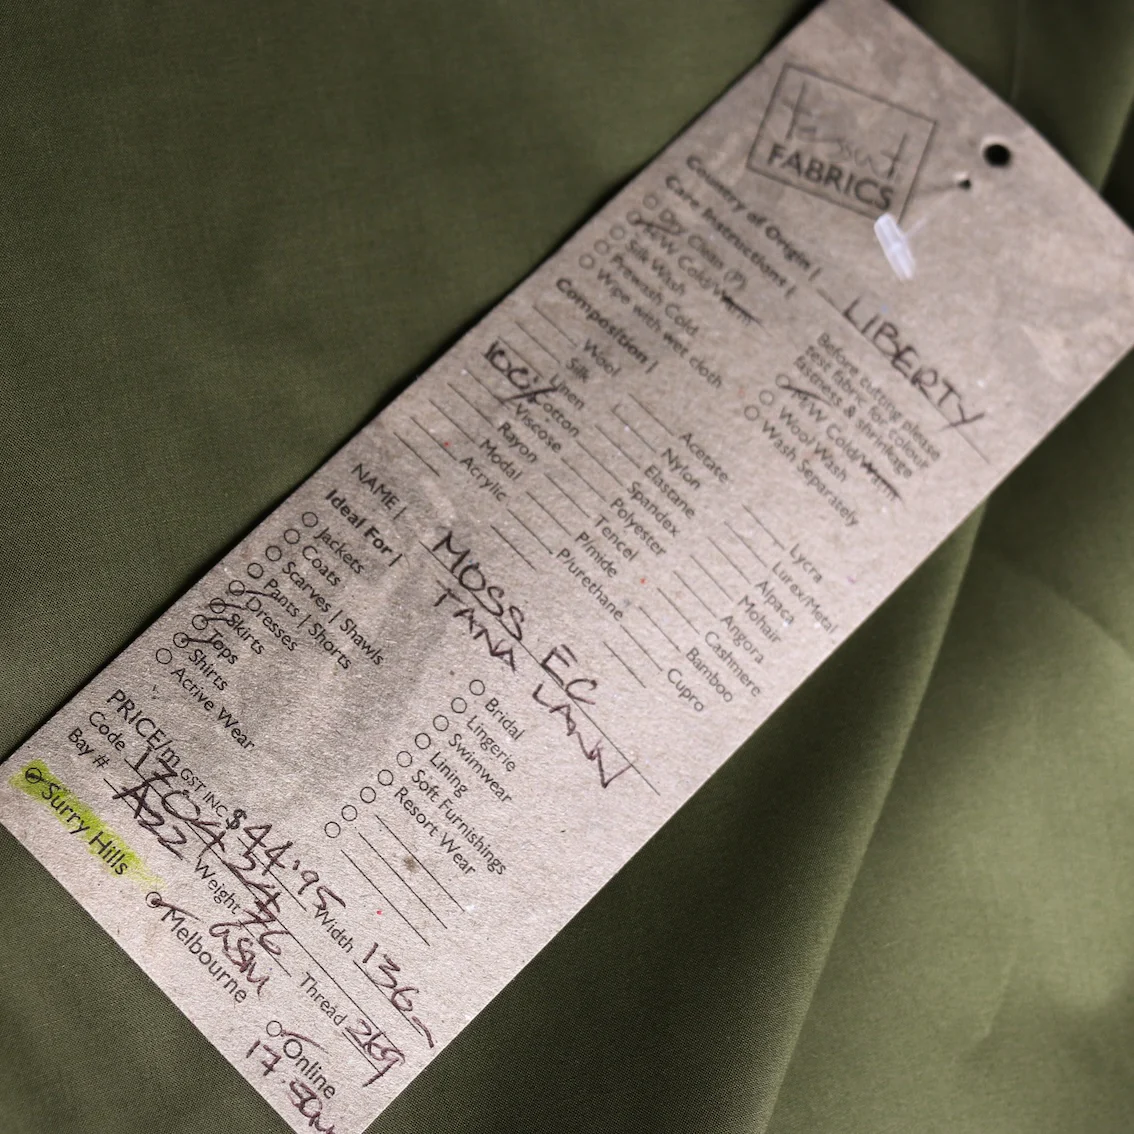 Tessuti
FABRICS
Country of Origin | LIBERTY
Care Instructions |
Dry Clean (P)
M/W Cold/Warm
Silk Wash
Prewash Cold
Wipe with wet cloth
Before cutting please
test fabric for colour
fastness & shrinkage
M/W Cold/Warm
Wool Wash
Wash Separately
Composition |
Wool
Silk
Linen
100% Cotton
Viscose
Rayon
Modal
Acrylic
Acetate
Nylon
Elastane
Spandex
Polyester
Tencel
P/mide
P/urethane
Lycra
Lurex/Metal
Alpaca
Mohair
Angora
Cashmere
Bamboo
Cupro
NAME | MOSS EC
TANA LAWN
Ideal For |
Jackets
Coats
Scarves | Shawls
Pants | Shorts
Dresses
Skirts
Tops
Shirts
Active Wear
Bridal
Lingerie
Swimwear
Lining
Soft Furnishings
Resort Wear
PRICE/m GST INC $44.95 Width 136
Code Weight Thread
Bay # A22
Surry Hills Melbourne Online